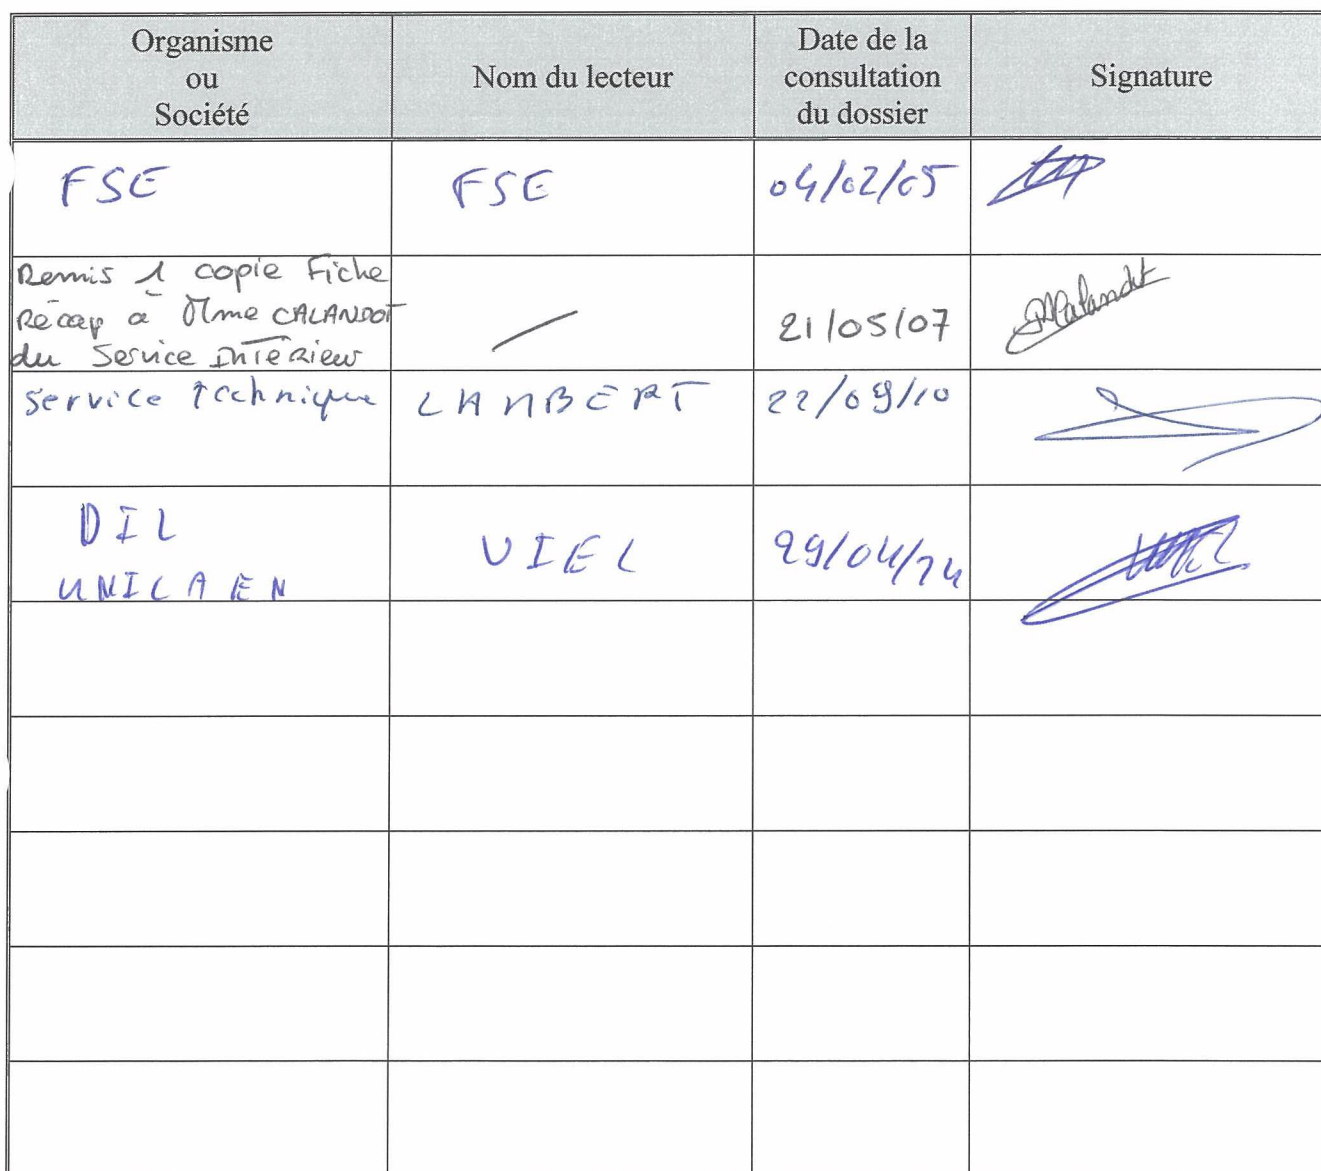 Organisme
ou
Société
Nom du lecteur
Date de la
consultation
du dossier
Signature
FSE
FSE
04/02/05
Remis 1 copie Fiche
Récap à Mme CALANDOT
du Service Intérieur
21/05/07
Service technique
LAMBERT
22/09/10
DIL
UNICAEN
VIEL
29/04/24